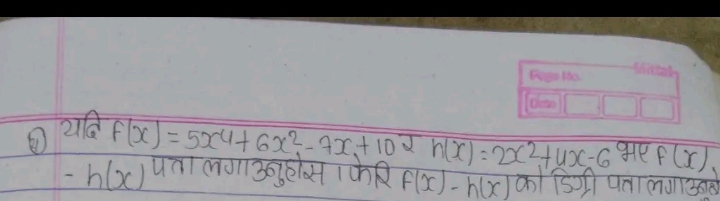 Page No.
Date
यदि f(x) = 5x⁴ + 6x² - 7x + 10 र h(x) = 2x² + 4x - 6 भए f(x)
- h(x) पत्ता लगाउनुहोस । फेरि f(x) - h(x) को डिग्री पत्ता लगाउनुहो